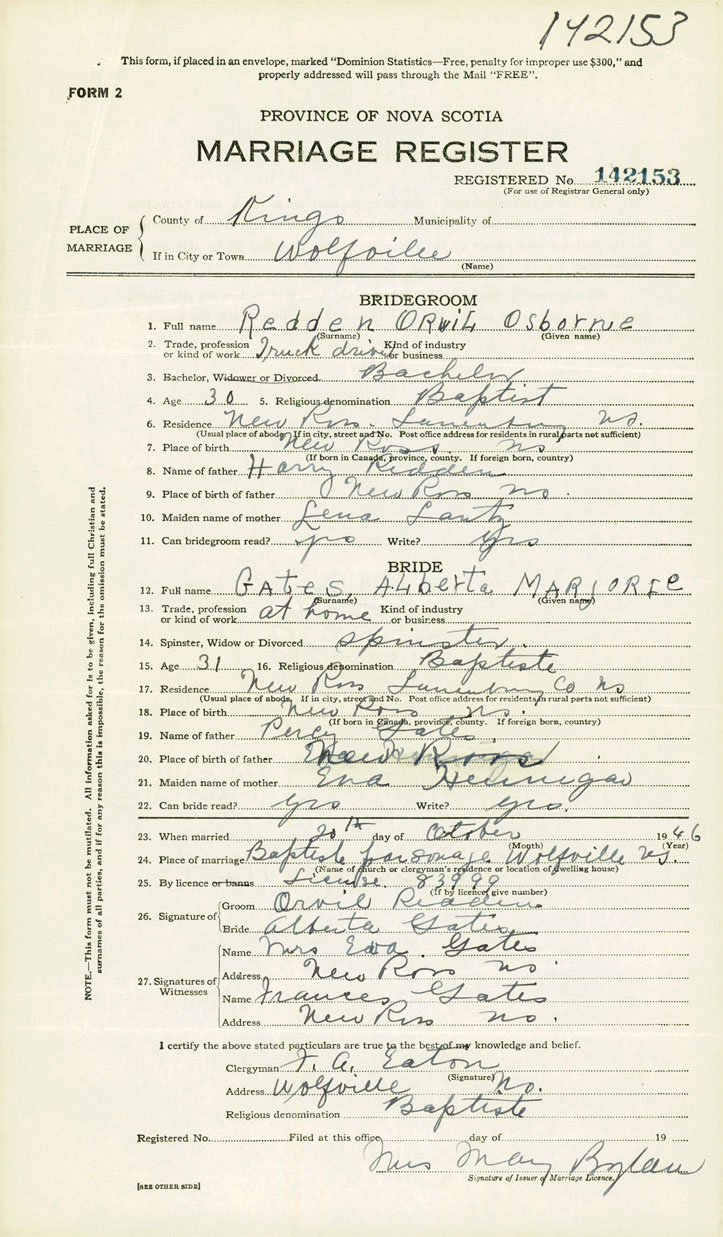 142153
This form, if placed in an envelope, marked "Dominion Statistics—Free, penalty for improper use $300," and
properly addressed will pass through the Mail "FREE".
FORM 2
PROVINCE OF NOVA SCOTIA
MARRIAGE REGISTER
REGISTERED No. 142153
(For use of Registrar General only)
PLACE OF MARRIAGE
County of Kings Municipality of
If in City or Town Wolfville
(Name)
BRIDEGROOM
1. Full name Redden Orvil Osborne
(Surname) (Given name)
2. Trade, profession or kind of work Truck driver Kind of industry or business
3. Bachelor, Widower or Divorced Bachelor
4. Age 30 5. Religious denomination Baptist
6. Residence New Ross. Lunenburg NS.
(Usual place of abode. If in city, street and No. Post office address for residents in rural parts not sufficient)
7. Place of birth New Ross NS
(If born in Canada, province, county. If foreign born, country)
8. Name of father Harry Redden
9. Place of birth of father New Ross NS.
10. Maiden name of mother Lena Lantz
11. Can bridegroom read? yes Write? yes
BRIDE
12. Full name Gates, Alberta Marjorie
(Surname) (Given name)
13. Trade, profession or kind of work at home Kind of industry or business
14. Spinster, Widow or Divorced spinster.
15. Age 31 16. Religious denomination Baptiste
17. Residence New Ross Lunenburg Co NS
(Usual place of abode. If in city, street and No. Post office address for residents in rural parts not sufficient)
18. Place of birth New Ross NS.
(If born in Canada, province, county. If foreign born, country)
19. Name of father Percy Gates.
20. Place of birth of father New Ross
21. Maiden name of mother Eva Hennigar
22. Can bride read? yes Write? yes.
23. When married 20th day of October 1946
(Month) (Year)
24. Place of marriage Baptiste parsonage Wolfville NS.
(Name of church or clergyman's residence or location of dwelling house)
25. By licence or banns License. 83999
(If by licence, give number)
26. Signature of
Groom Orvil Redden
Bride Alberta Gates.
27. Signatures of Witnesses
Name Mrs Eva. Gates
Address New Ross NS.
Name Frances Gates
Address New Ross NS.
I certify the above stated particulars are true to the best of my knowledge and belief.
Clergyman F. A. Eaton
(Signature)
Address Wolfville NS.
Religious denomination Baptiste
Registered No. Filed at this office day of 19
Mrs May
Signature of Issuer of Marriage Licence.
[SEE OTHER SIDE]
NOTE.—This form must not be mutilated. All information asked for is to be given, including full Christian and
surnames of all parties, and if for any reason this is impossible, the reason for the omission must be stated.